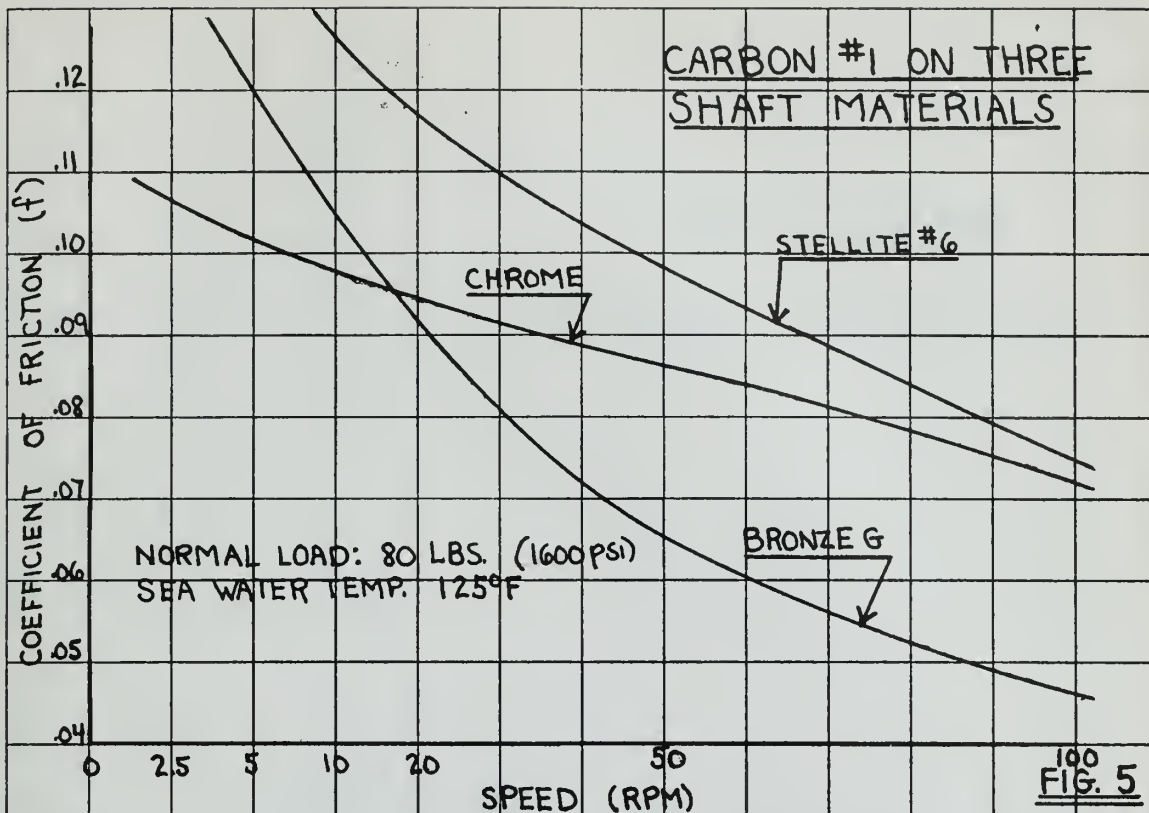 CARBON #1 ON THREE
SHAFT MATERIALS
COEFFICIENT OF FRICTION (f)
.12
.11
.10
.09
.08
.07
.06
.05
.04
STELLITE #6
CHROME
BRONZE G
NORMAL LOAD: 80 LBS. (1600 PSI)
SEA WATER TEMP. 125°F
0 2.5 5 10 20 50 100
SPEED (RPM)
FIG. 5